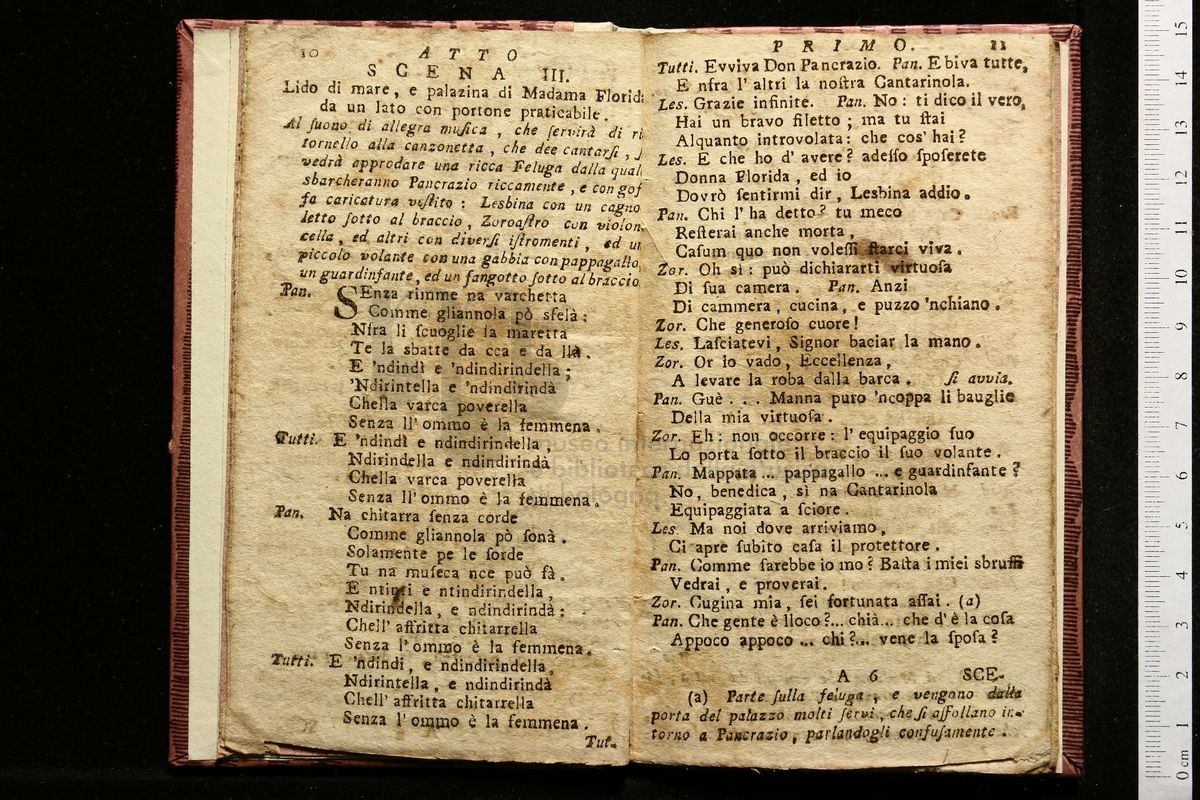 10 ATTO
SCENA III.
Lido di mare, e palazina di Madama Florida
da un lato con portone praticabile.
Al suono di allegra musica, che servirà di ri
tornello alla canzonetta, che dee cantarsi, s
vedrà approdare una ricca Feluga dalla qual
sbarcheranno Pancrazio riccamente, e con gof
fa caricatura vestito: Lesbina con un cagno
letto sotto al braccio, Zoroastro con violon
cella, ed altri con diversi istromenti, ed un
piccolo volante con una gabbia con pappagallo,
un guardinfante, ed un fangotto sotto al braccio
Pan. SEnza rimme na varchetta
Comme gliannola pò sfelà:
Nfra li scuoglie la maretta
Te la sbatte da cca e da llà.
E 'ndindì e 'ndindirindella;
'Ndirintella e 'ndindirindà
Chella varca poverella
Senza ll' ommo è la femmena.
Tutti. E 'ndindì e ndindirindella,
Ndirindella e ndindirindà
Chella varca poverella
Senza ll' ommo è la femmena.
Pan. Na chitarra senza corde
Comme gliannola pò sonà.
Solamente pe le sorde
Tu na museca nce può fà.
E ntinti e ntindirindella,
Ndirindella, e ndindirindà:
Chell' affritta chitarrella
Senza l' ommo è la femmena.
Tutti. E 'ndindi, e ndindirindella,
Ndirintella, e ndindirindà
Chell' affritta chitarrella
Senza l' ommo è la femmena.
Tut.
PRIMO. 11
Tutti. Evviva Don Pancrazio. Pan. E biva tutte,
E nfra l' altri la nostra Cantarinola.
Les. Grazie infinite. Pan. No: ti dico il vero,
Hai un bravo filetto; ma tu stai
Alquanto introvolata: che cos' hai?
Les. E che ho d' avere? adesso sposerete
Donna Florida, ed io
Dovrò sentirmi dir, Lesbina addio.
Pan. Chi l' ha detto? tu meco
Resterai anche morta,
Casum quo non volessi starci viva.
Zor. Oh sì: può dichiararti virtuosa
Di sua camera. Pan. Anzi
Di cammera, cucina, e puzzo 'nchiano.
Zor. Che generoso cuore!
Les. Lasciatevi, Signor baciar la mano.
Zor. Or io vado, Eccellenza,
A levare la roba dalla barca. si avvia.
Pan. Guè... Manna puro 'ncoppa li bauglie
Della mia virtuosa.
Zor. Eh: non occorre: l' equipaggio suo
Lo porta sotto il braccio il suo volante.
Pan. Mappata... pappagallo... e guardinfante?
No, benedica, sì na Cantarinola
Equipaggiata a sciore.
Les. Ma noi dove arriviamo,
Ci apre subito casa il protettore.
Pan. Comme sarebbe io mo? Basta i miei sbruffi
Vedrai, e proverai.
Zor. Cugina mia, sei fortunata assai. (a)
Pan. Che gente è lloco?... chià... che d' è la cosa
Appoco appoco... chi?... vene la sposa?
A 6 SCE-
(a) Parte sulla feluga, e vengono dalla
porta del palazzo molti servi, che si affollano in-
torno a Pancrazio, parlandogli confusamente.